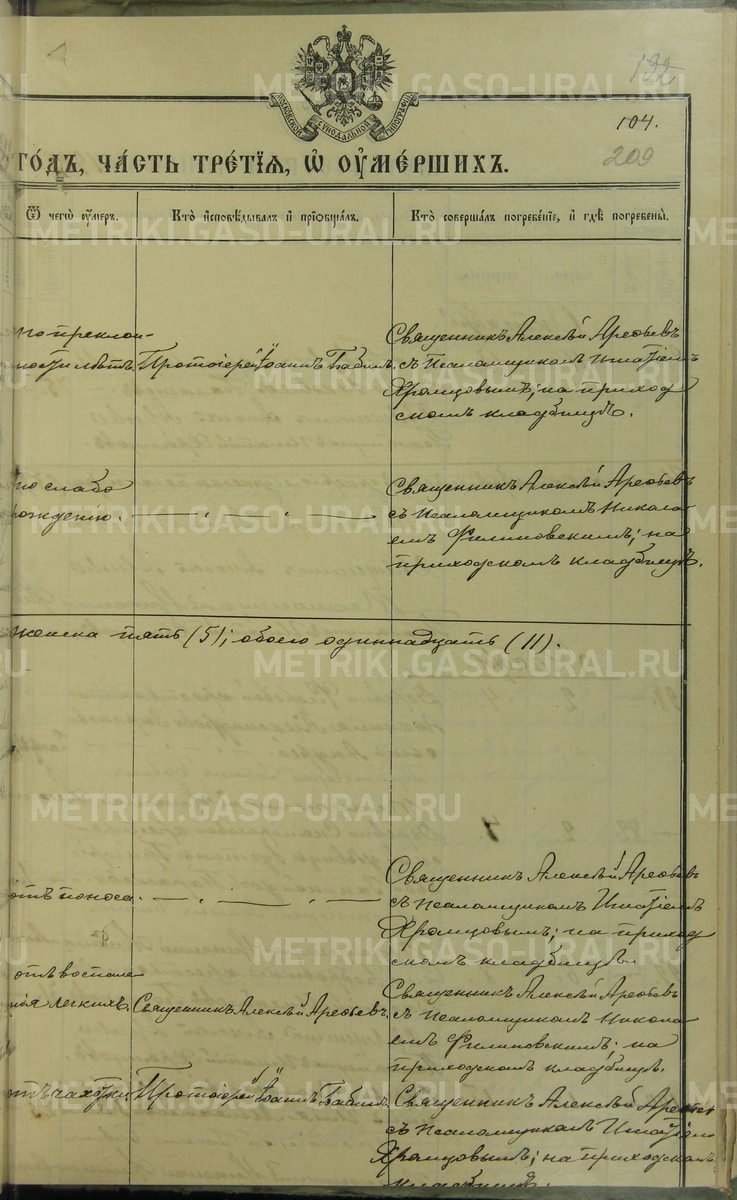 122
104.
209
МОСКОВСКОЙ СѴНОДАЛЬНОЙ ТИПОГРАФІИ
ГО́ДЪ, ЧА́СТЬ ТРЕ́ТІѦ, Ѡ҆ ОУ҆МЕ́РШИХЪ.
Ѿ чегѡ̀ оу҆́меръ.
Кто̀ и҆сповѣ́дывалъ и҆ прїѡбща́лъ.
Кто̀ соверша́лъ погребе́нїе, и҆ гдѣ̀ погребены̀.
по преклон-
ности лѣтъ.
Протоіерей Іоаннъ Бабинъ.
Священникъ Алексѣй Арефьевъ
съ Псаломщикомъ Игнатіемъ
Хромцовымъ; на приход
скомъ кладбищѣ.
по слабо
рожденію.
Священникъ Алексѣй Арефьевъ
съ Псаломщикомъ Никола
емъ Филиповскимъ; на
приходскомъ кладбищѣ.
женска пять (5); обоего одиннадцать (11).
отъ поноса.
Священникъ Алексѣй Арефьевъ
съ Псаломщикомъ Игнатіемъ
Хромцовымъ; на приход
скомъ кладбищѣ.
отъ воспале
нія легкихъ.
Священникъ Алексѣй Арефьевъ.
Священникъ Алексѣй Арефьевъ
съ Псаломщикомъ Никола
емъ Филиповскимъ; на
приходскомъ кладбищѣ.
отъ чахотки
Протоіерей Іоаннъ Бабинъ.
Священникъ Алексѣй Арефьев
съ Псаломщикомъ Игнатіемъ
Хромцовымъ; на приходскомъ
кладбищѣ.
METRIKI.GASO-URAL.RU